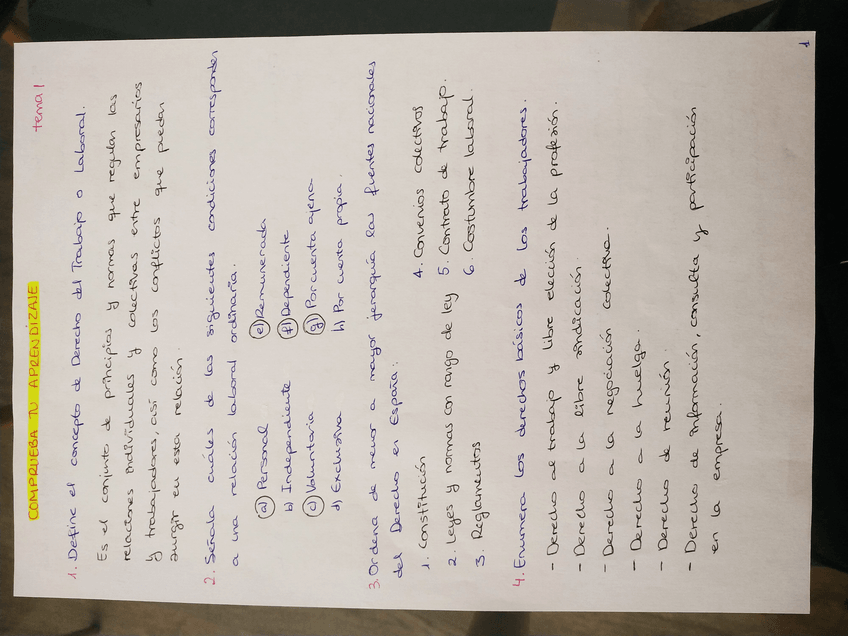 COMPRUEBA TU APRENDIZAJE
tema 1
1. Define el concepto de Derecho del Trabajo o Laboral.
Es el conjunto de principios y normas que regulan las
relaciones individuales y colectivas entre empresarios
y trabajadores, así como los conflictos que puedan
surgir en esta relación.
2. Señala cuáles de las siguientes condiciones corresponden
a una relación laboral ordinaria.
a) Personal
b) Independiente
c) Voluntaria
d) Exclusiva
e) Remunerada
f) Dependiente
g) Por cuenta ajena
h) Por cuenta propia.
3. Ordena de menor a mayor jerarquía las fuentes nacionales
del Derecho en España:
1. Constitución
2. Leyes y normas con rango de ley
3. Reglamentos
4. Convenios colectivos
5. Contrato de trabajo.
6. Costumbre laboral.
4. Enumera los derechos básicos de los trabajadores.
- Derecho al trabajo y libre elección de la profesión.
- Derecho a la libre sindicación.
- Derecho a la negociación colectiva.
- Derecho a la huelga.
- Derecho de reunión.
- Derecho de información, consulta y participación
en la empresa.
1